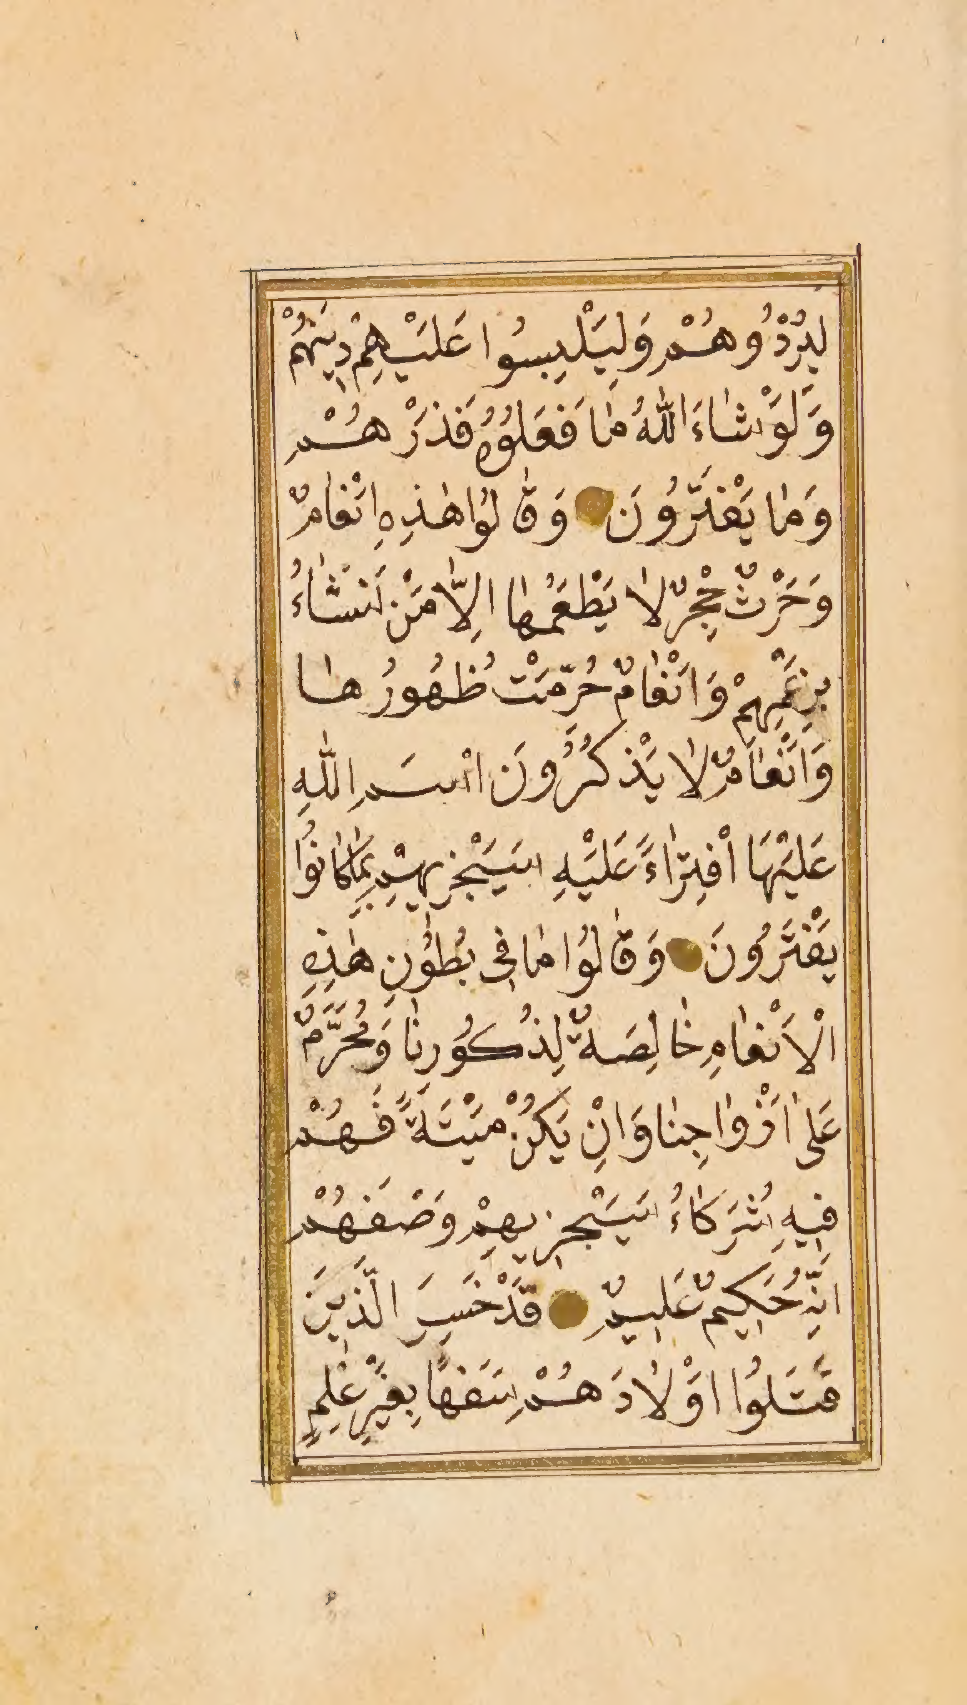 لِيُرْدُوهُمْ وَلِيَلْبِسُوا عَلَيْهِمْ دِينَهُمْ
وَلَوْ شَاءَ اللّٰهُ مَا فَعَلُوُهُ فَذَرْهُمْ
وَمَا يَفْتَرُونَ وَقَالُوا هٰذِهِ اَنْعَامٌ
وَحَرْثٌ حِجْرٌ لَا يَطْعَمُهَا اِلَّا مَنْ نَشَاءُ
بِزَعْمِهِمْ وَاَنْعَامٌ حُرِّمَتْ ظُهُورُهَا
وَاَنْعَامٌ لَا يَذْكُرُونَ اسْمَ اللّٰهِ
عَلَيْهَا افْتِرَاءً عَلَيْهِ سَيَجْزِيهِمْ بِمَا كَانُوا
يَفْتَرُونَ وَقَالُوا مَا فِى بُطُونِ هٰذِهِ
الْاَنْعَامِ خَالِصَةٌ لِذُكُورِنَا وَمُحَرَّمٌ
عَلٰى اَزْوَاجِنَا وَاِنْ يَكُنْ مَيْتَةً فَهُمْ
فِيهِ شُرَكَاءُ سَيَجْزِيهِمْ وَصْفَهُمْ
اِنَّهُ حَكِيمٌ عَلِيمٌ قَدْ خَسِرَ الَّذِينَ
قَتَلُوا اَوْلَادَهُمْ سَفَهًا بِغَيْرِ عِلْمٍ